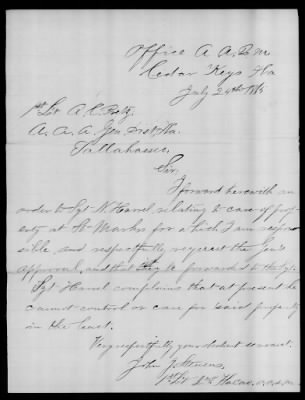 Office A A Q M
Cedar Keys Fla
July 24th 1865
1st Lt A. C.
A. A. A. Gen Dist Fla.
Tallahassee.
Sir,
I forward herewith an
order to Sgt N. Havel relating to care of prop
erty at St. Marks for which I am respon
sible, and respectfully request the Gen's
approval, and that it be forwarded to the Sgt.
Sgt Havel complains that at present he
cannot control or care for said property
in the least.
Very respectfully your obedient servant.
John J. Stevens,
1st Lt 2nd